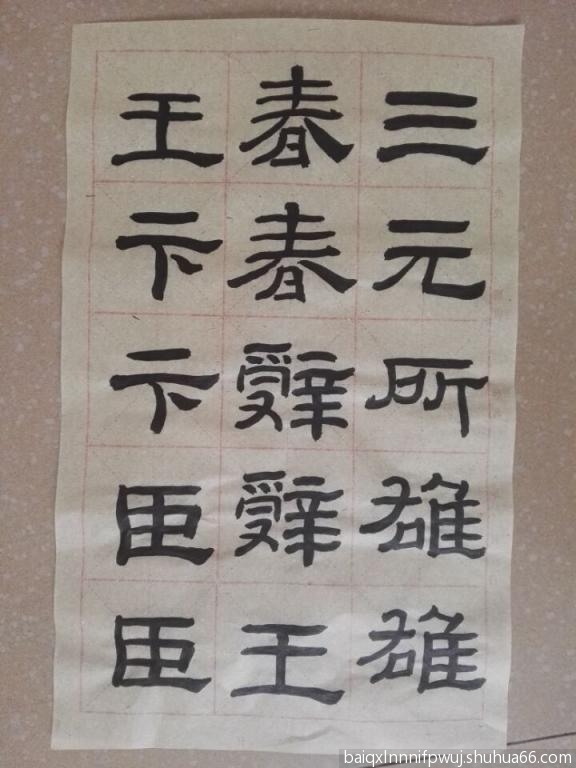 三元所雄雄
春春辭辭王
王卞卞臣臣
baiqxlnnnifpwuj.shuhua66.com